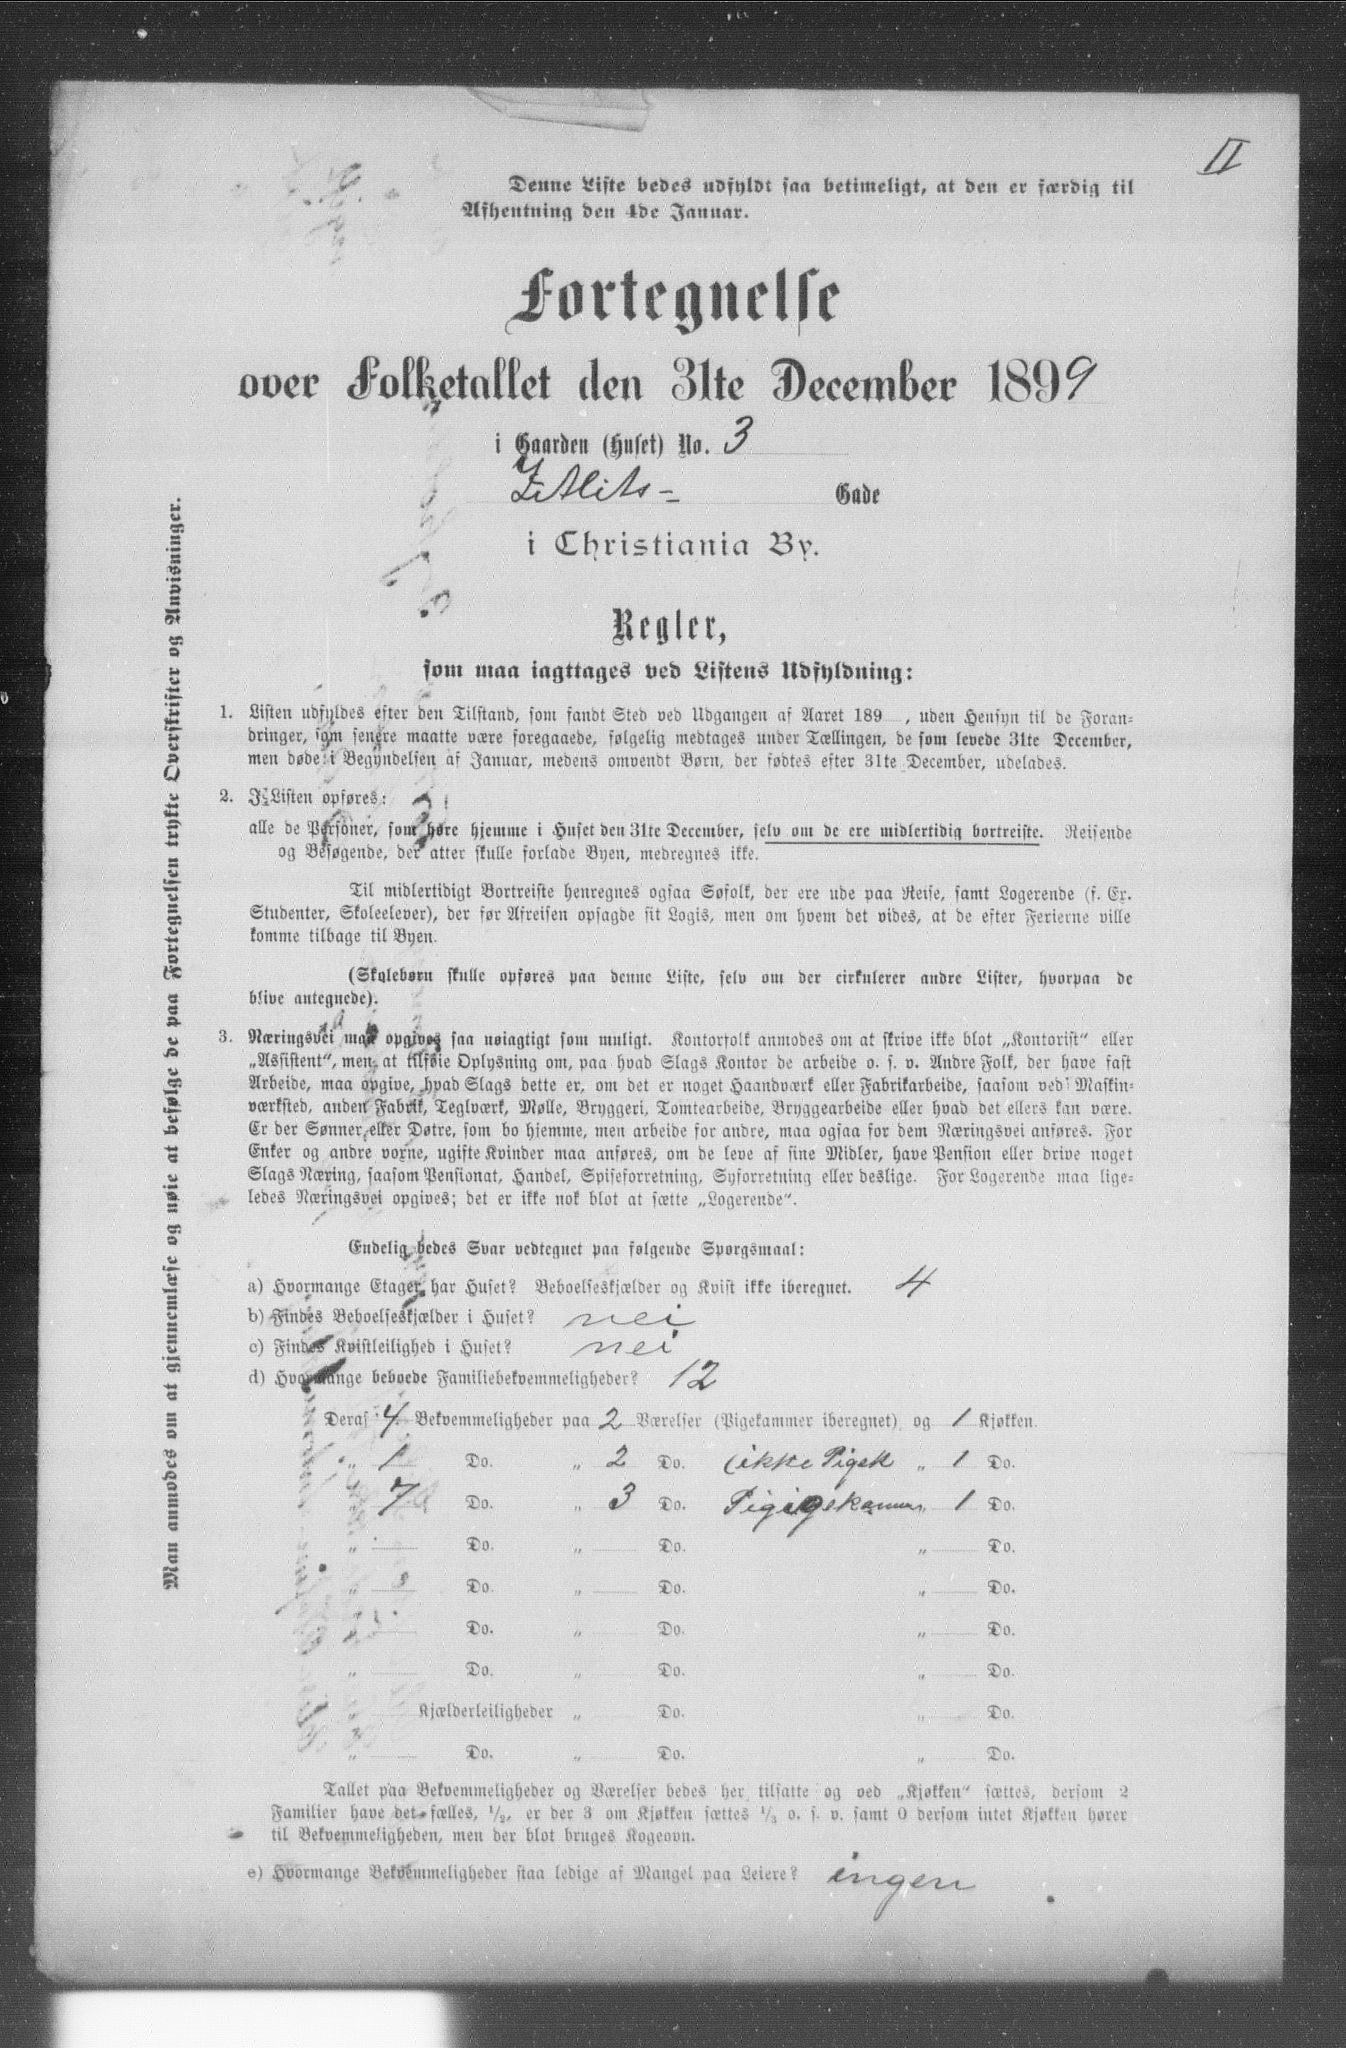 II
Denne Liste bedes udfyldt saa betimeligt, at den er færdig til
Afhentning den 4de Januar.
Fortegnelse
over Folketallet den 31te December 1899
i Gaarden (Huset) No. 3
Zetlits- Gade
i Christiania By.
Regler,
som maa iagttages ved Listens Udfyldning:
1. Listen udfyldes efter den Tilstand, som fandt Sted ved Udgangen af Aaret 189 , uden Hensyn til de Foran-
dringer, som senere maatte være foregaaede, følgelig medtages under Tællingen, de som levede 31te December,
men døde i Begyndelsen af Januar, medens omvendt Børn, der fødtes efter 31te December, udelades.
2. I Listen opføres:
alle de Personer, som høre hjemme i Huset den 31te December, selv om de ere midlertidig bortreiste. Reisende
og Besøgende, der atter skulle forlade Byen, medregnes ikke.
Til midlertidigt Bortreiste henregnes ogsaa Søfolk, der ere ude paa Reise, samt Logerende (f. Ex.
Studenter, Skoleelever), der før Afreisen opsagde sit Logis, men om hvem det vides, at de efter Ferierne ville
komme tilbage til Byen.
(Skolebørn skulle opføres paa denne Liste, selv om der cirkulerer andre Lister, hvorpaa de
blive antegnede).
3. Næringsvei maa opgives saa nøiagtigt som muligt. Kontorfolk anmodes om at skrive ikke blot „Kontorist“ eller
„Assistent“, men at tilføie Oplysning om, paa hvad Slags Kontor de arbeide o. s. v. Andre Folk, der have fast
Arbeide, maa opgive, hvad Slags dette er, om det er noget Haandværk eller Fabrikarbeide, saasom ved Maskin-
værksted, anden Fabrik, Teglværk, Mølle, Bryggeri, Tomtearbeide, Bryggearbeide eller hvad det ellers kan være.
Er der Sønner eller Døtre, som bo hjemme, men arbeide for andre, maa ogsaa for dem Næringsvei anføres. For
Enker og andre voxne, ugifte Kvinder maa anføres, om de leve af sine Midler, have Pension eller drive noget
Slags Næring, saasom Pensionat, Handel, Spiseforretning, Syforretning eller deslige. For Logerende maa lige-
ledes Næringsvei opgives; det er ikke nok blot at sætte „Logerende“.
Endelig bedes Svar vedtegnet paa følgende Spørgsmaal:
a) Hvormange Etager har Huset? Beboelseskjælder og Kvist ikke iberegnet. 4
b) Findes Beboelseskjælder i Huset? nei
c) Findes Kvistleilighed i Huset? nei
d) Hvormange beboede Familiebekvemmeligheder? 12
Deraf 4 Bekvemmeligheder paa 2 Værelser (Pigekammer iberegnet) og 1 Kjøkken.
„ 1 Do. „ 2 Do. (ikke Pigek „ 1 Do.
7 Do. „ 3 Do. „ 1 Do.
„ Do. „ Do. „ Do.
„ Do. „ Do. „ Do.
„ Do. „ Do. „ Do.
„ Do. „ Do. „ Do.
„ Kjælderleiligheder „ Do. „ Do.
„ Do. „ Do. „ Do.
Tallet paa Bekvemmeligheder og Værelser bedes her tilsatte og ved „Kjøkken“ sættes, dersom 2
Familier have det fælles, 1/2, er der 3 om Kjøkken sættes 1/3 o. s. v. samt 0 dersom intet Kjøkken hører
til Bekvemmeligheden, men der blot bruges Kogeovn.
e) Hvormange Bekvemmeligheder staa ledige af Mangel paa Leiere? ingen
Man anmodes om at gjennemlæse og nøie at befølge de paa Fortegnelsen trykte Overskrifter og Anvisninger.